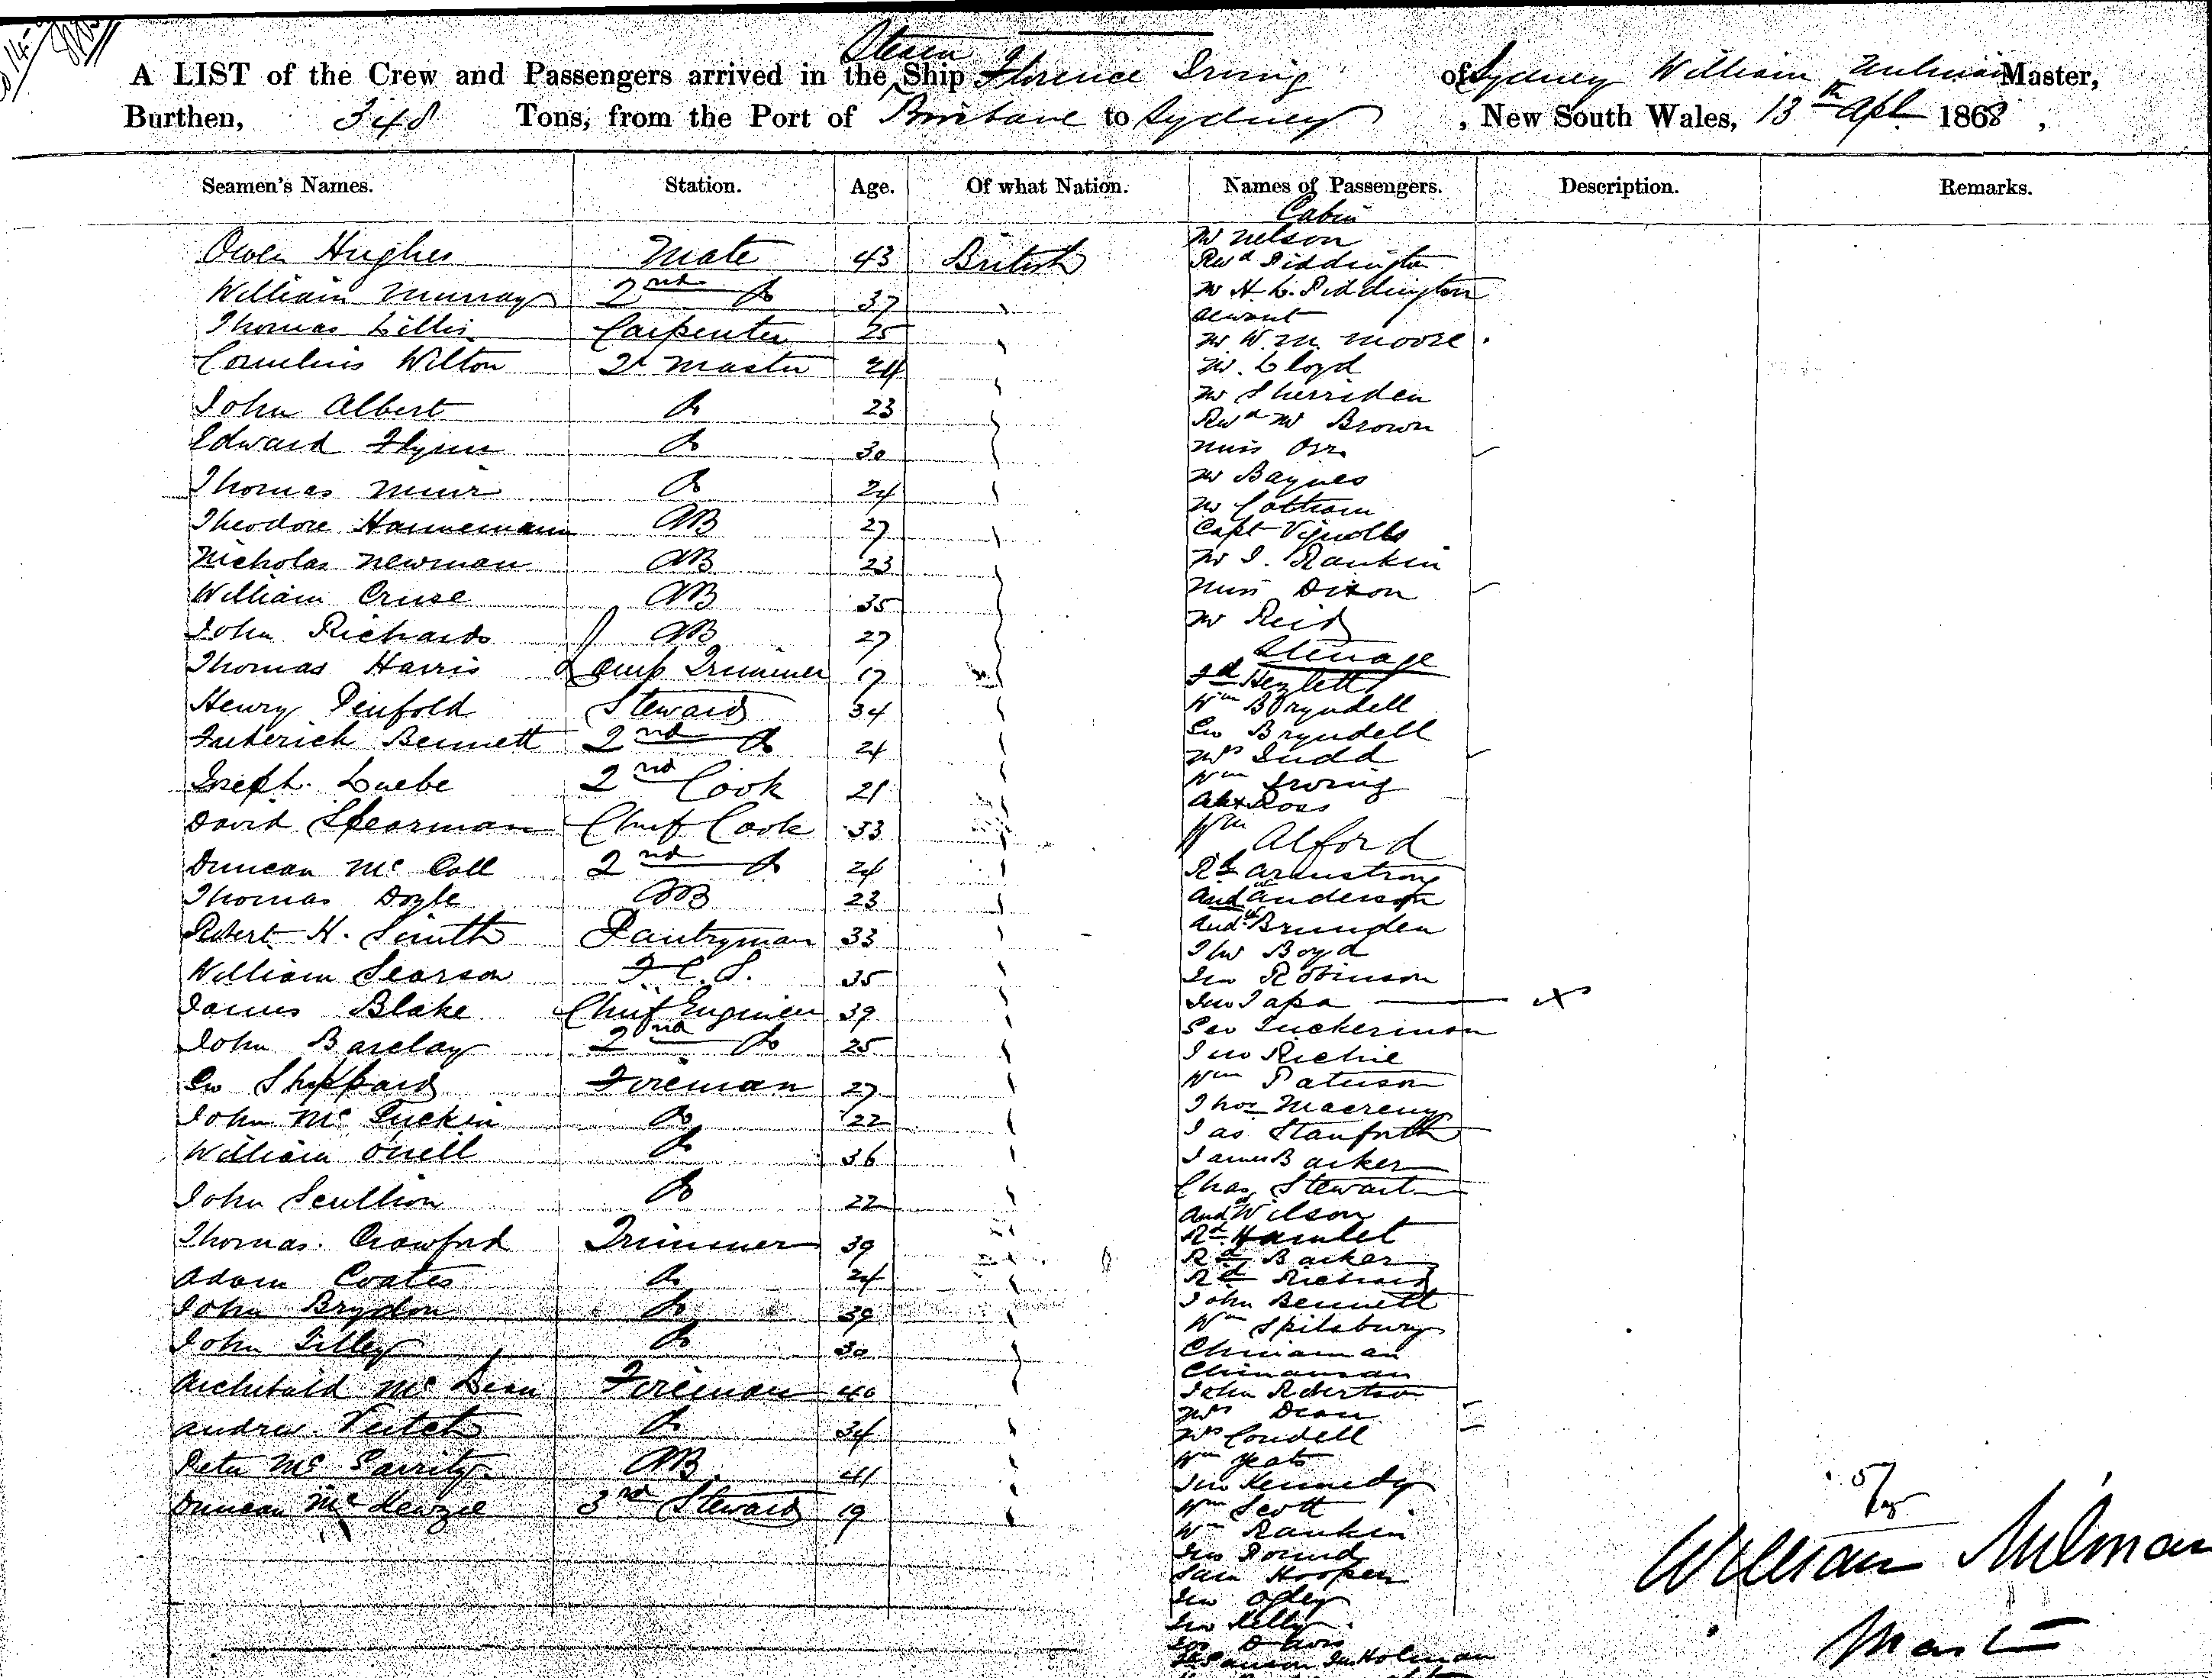 Steam
A LIST of the Crew and Passengers arrived in the Ship Florence Irving of Sydney William Master,
Burthen, 348 Tons, from the Port of Brisbane to Sydney, New South Wales, 13th Apl 1868,
Seamen's Names. Station. Age. Of what Nation. Names of Passengers. Description. Remarks.
Owen Hughes Mate 43 British
William Murray 2nd Do 37
Thomas Lillis Carpenter 25
Cornelius Wilton Qr Master 24
John Albert Do 23
Edward Flynn Do 30
Thomas Muir Do 24
Theodore Hannemann AB 27
Nicholas Newman AB 23
William Cruse AB 35
John Richards AB 27
Thomas Harris Lamp Trimmer 17
Henry Penfold Steward 34
Frederick Bennett 2nd Do 24
Joseph Luebe 2nd Cook 21
David Spearman Chief Cook 33
Duncan McCall 2nd Do 24
Thomas Doyle AB 23
Robert H. Smith Pantryman 33
William Searson F.C.S. 35
James Blake Chief Engineer 39
John Barclay 2nd Do 25
Geo Sheppard Fireman 27
John McGuckin Do 22
William Orrell Do 36
John Scullion Do 22
Thomas Crawford Trimmer 39
Adam Coates Do 24
John Brydon Do 39
John Tilley Do 30
Archibald McLean Fireman 40
Andrew Veitch Do 34
Peter McGarrity AB 41
Duncan McKenzie 3rd Steward 19
Cabin
Mr Nelson
Revd Piddington
Mr H. L. Piddington
Servant
Mr W. M. Moore
Mr. Lloyd
Mr Sherriden
Revd Mr Brown
Miss Orr
Mr Baynes
Mr Cottam
Capt Vignolles
Mr J. Rankin
Miss Dixon
Mr Reid
Steerage
Hezlett
Wm Bryndell
Geo Bryndell
Mrs Judd
Wm Irving
Alex Ross
Wm Alford
Rd Armstrong
Andw Anderson
Andw Brunden
Thos Boyd
Jno Robinson
Jno Papa X
Geo Zuckerman
Jno Richie
Wm Paterson
Thos Macreny
Jas Stanforth
James Barker
Chas Stewart
Andw Wilson
Rd Hamlet
Rd Barker
Rd Richard
John Bennett
Wm Spilsbury
Chinaman
Chinaman
John Robertson
Mrs Dean
Mrs Condell
Wm Yeats
Jno Kennedy
Wm Scott
Wm Rankin
Jno Pound
Sam Hooper
Jno Ogley
Jno Kelly
Davis
Jno Holman
William Milman
Master